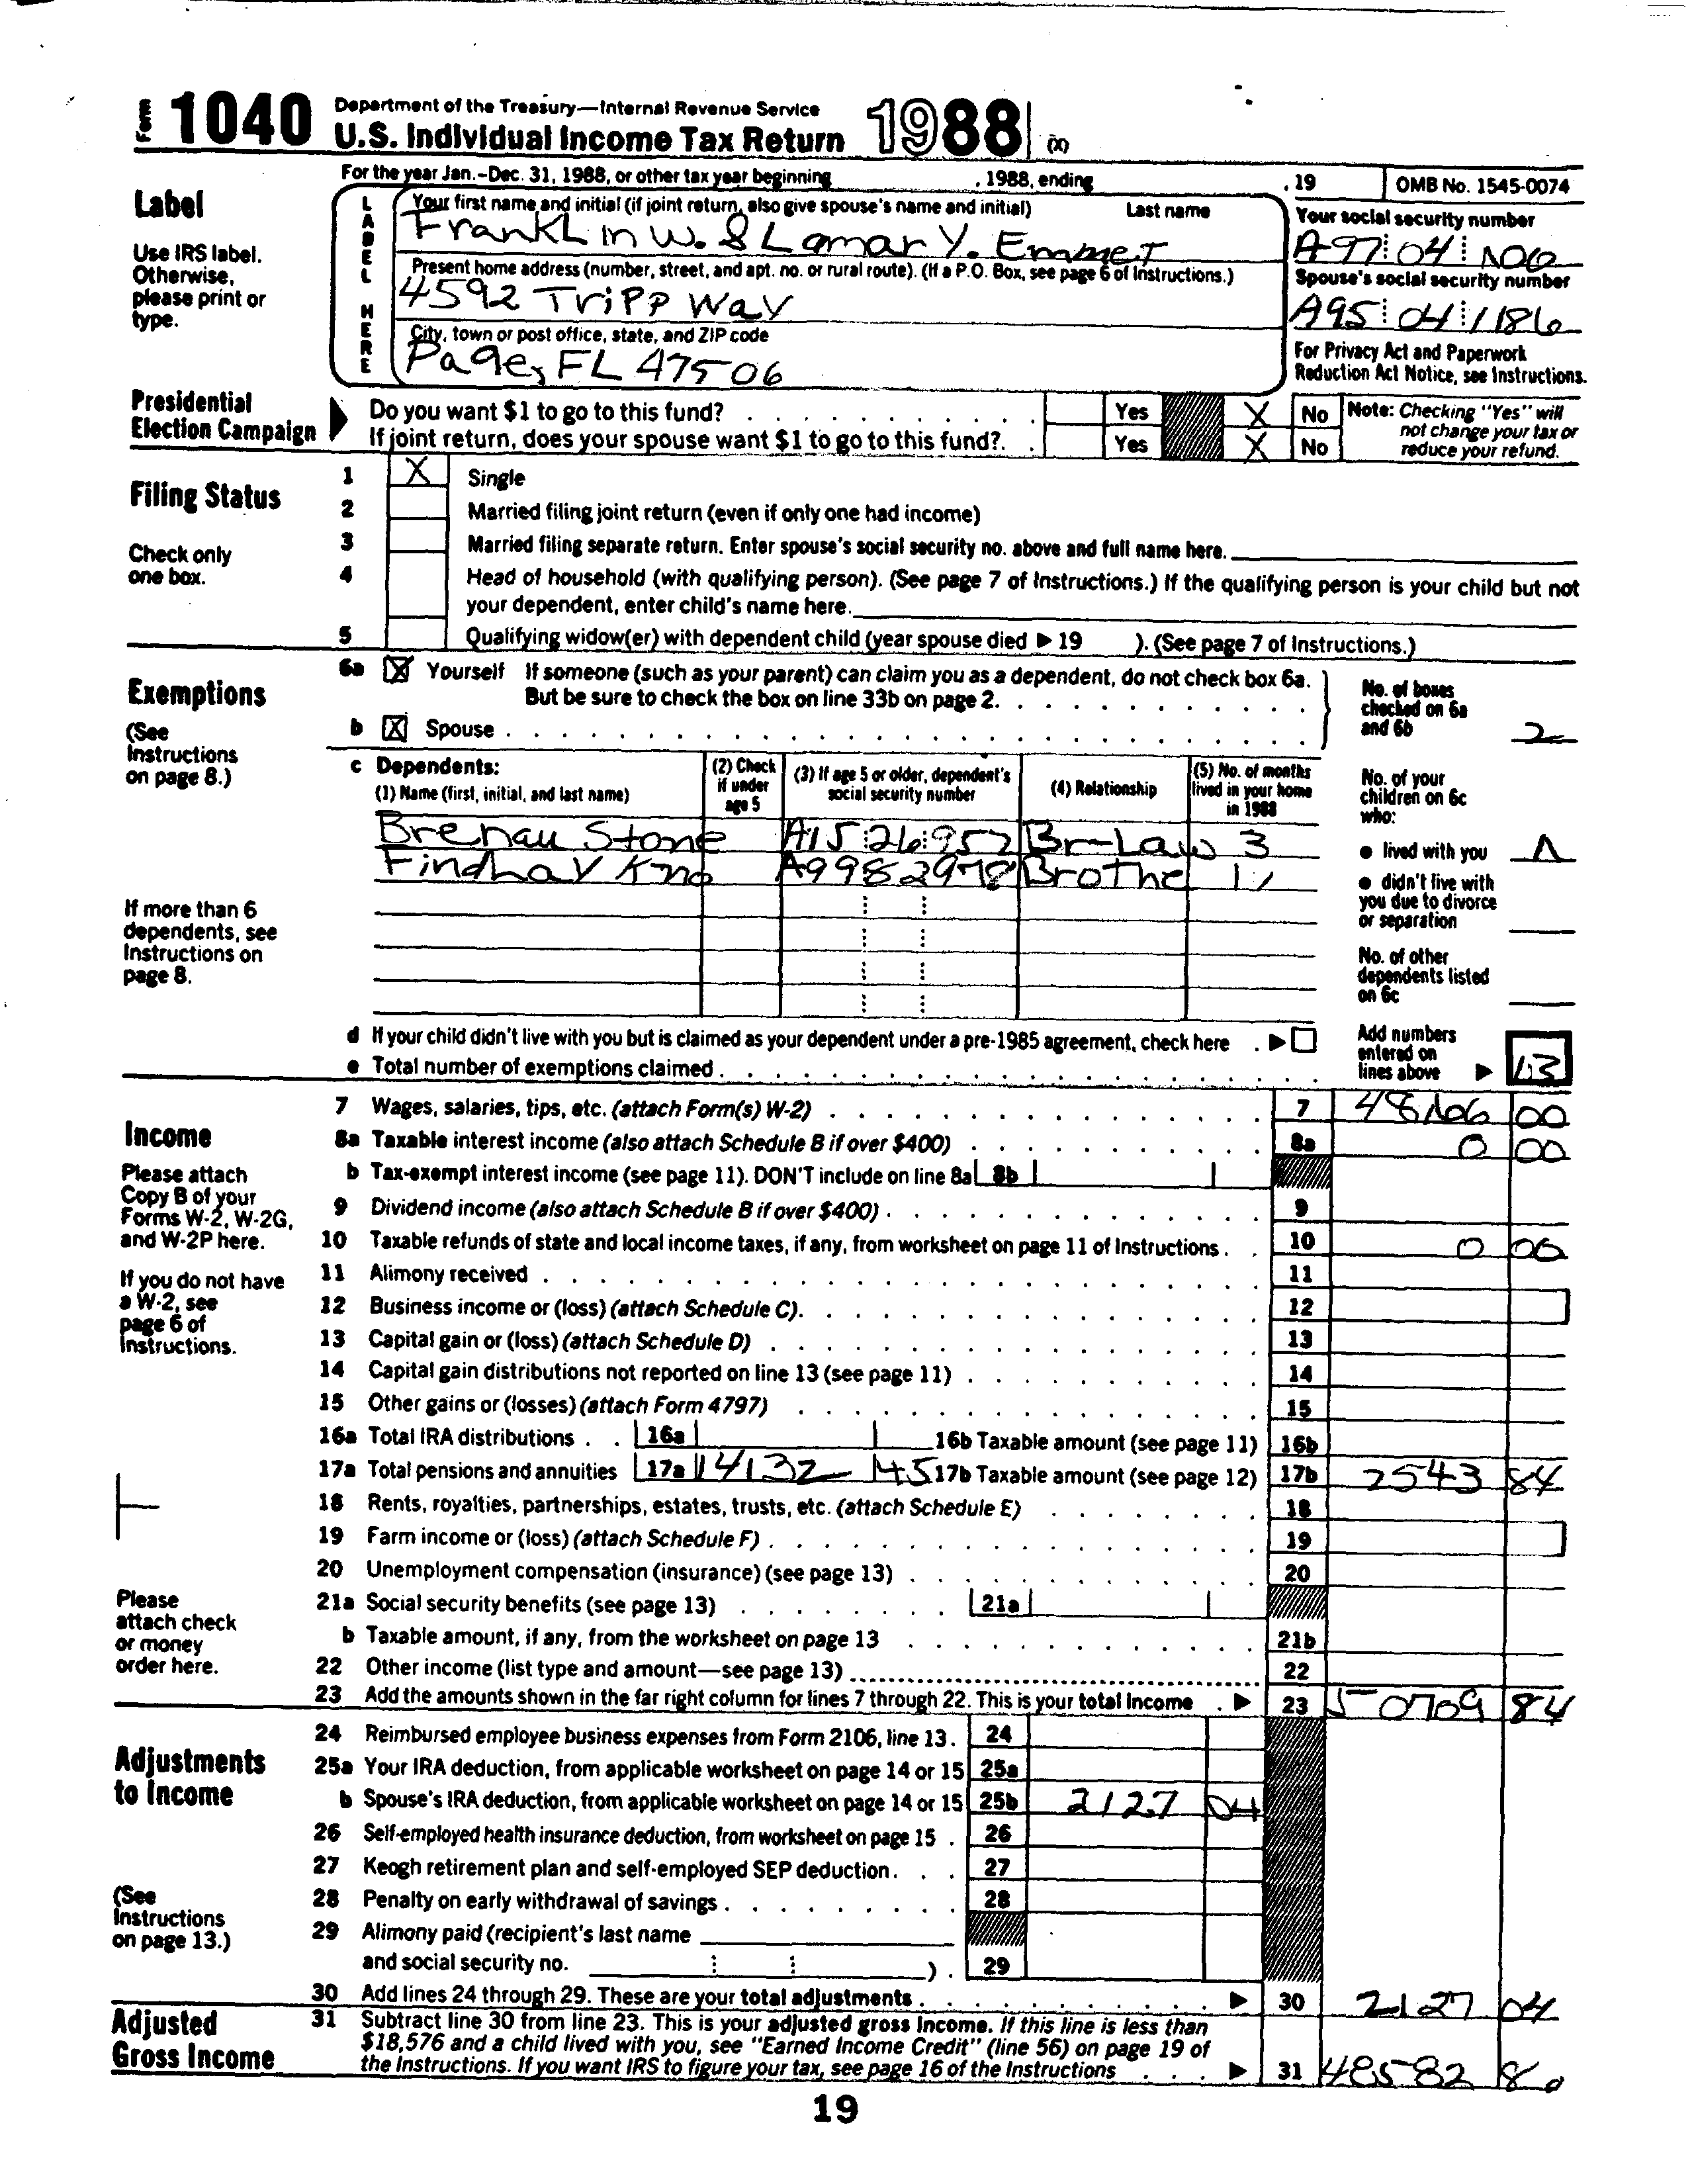 Form 1040 Department of the Treasury—Internal Revenue Service
U.S. Individual Income Tax Return 1988 (X)
For the year Jan.-Dec. 31, 1988, or other tax year beginning , 1988, ending , 19 OMB No. 1545-0074
Label
Use IRS label.
Otherwise,
please print or
type.
LABEL HERE
Your first name and initial (if joint return, also give spouse's name and initial) Last name
FrankLin W. & Lamar Y. Emmet
Present home address (number, street, and apt. no. or rural route). (If a P.O. Box, see page 6 of Instructions.)
4592 Tripp Way
City, town or post office, state, and ZIP code
Page, FL 47506
Your social security number
A97 04
Spouse's social security number
A95 04 1186
For Privacy Act and Paperwork
Reduction Act Notice, see Instructions.
Presidential
Election Campaign
Do you want $1 to go to this fund? Yes X No
If joint return, does your spouse want $1 to go to this fund?. Yes X No
Note: Checking "Yes" will
not change your tax or
reduce your refund.
Filing Status
Check only
one box.
1 X Single
2 Married filing joint return (even if only one had income)
3 Married filing separate return. Enter spouse's social security no. above and full name here.
4 Head of household (with qualifying person). (See page 7 of Instructions.) If the qualifying person is your child but not
your dependent, enter child's name here.
5 Qualifying widow(er) with dependent child (year spouse died ▶ 19 ). (See page 7 of Instructions.)
Exemptions
(See
Instructions
on page 8.)
6a X Yourself If someone (such as your parent) can claim you as a dependent, do not check box 6a.
But be sure to check the box on line 33b on page 2.
b X Spouse
No. of boxes
checked on 6a
and 6b 2
c Dependents:
(1) Name (first, initial, and last name)
(2) Check
if under
age 5
(3) If age 5 or older, dependent's
social security number
(4) Relationship
(5) No. of months
lived in your home
in 1988
Brenau Stone A15 26 957 Br-Law 3
Findlay A99 82 978 Brothe
No. of your
children on 6c
who:
● lived with you
● didn't live with
you due to divorce
or separation
No. of other
dependents listed
on 6c
If more than 6
dependents, see
Instructions on
page 8.
d If your child didn't live with you but is claimed as your dependent under a pre-1985 agreement, check here ▶
e Total number of exemptions claimed
Add numbers
entered on
lines above ▶
Income
Please attach
Copy B of your
Forms W-2, W-2G,
and W-2P here.
If you do not have
a W-2, see
page 6 of
Instructions.
Please
attach check
or money
order here.
7 Wages, salaries, tips, etc. (attach Form(s) W-2) 7 48166 00
8a Taxable interest income (also attach Schedule B if over $400) 8a 0 00
b Tax-exempt interest income (see page 11). DON'T include on line 8a 8b
9 Dividend income (also attach Schedule B if over $400) 9
10 Taxable refunds of state and local income taxes, if any, from worksheet on page 11 of Instructions. 10 0 00
11 Alimony received 11
12 Business income or (loss) (attach Schedule C). 12
13 Capital gain or (loss) (attach Schedule D) 13
14 Capital gain distributions not reported on line 13 (see page 11) 14
15 Other gains or (losses) (attach Form 4797) 15
16a Total IRA distributions 16a 16b Taxable amount (see page 11) 16b
17a Total pensions and annuities 17a 14132 45 17b Taxable amount (see page 12) 17b 2543 84
18 Rents, royalties, partnerships, estates, trusts, etc. (attach Schedule E) 18
19 Farm income or (loss) (attach Schedule F) 19
20 Unemployment compensation (insurance) (see page 13) 20
21a Social security benefits (see page 13) 21a
b Taxable amount, if any, from the worksheet on page 13 21b
22 Other income (list type and amount—see page 13) 22
23 Add the amounts shown in the far right column for lines 7 through 22. This is your total income ▶ 23 50709 84
Adjustments
to Income
(See
Instructions
on page 13.)
24 Reimbursed employee business expenses from Form 2106, line 13. 24
25a Your IRA deduction, from applicable worksheet on page 14 or 15 25a
b Spouse's IRA deduction, from applicable worksheet on page 14 or 15 25b 2127 04
26 Self-employed health insurance deduction, from worksheet on page 15 26
27 Keogh retirement plan and self-employed SEP deduction 27
28 Penalty on early withdrawal of savings 28
29 Alimony paid (recipient's last name
and social security no. ). 29
30 Add lines 24 through 29. These are your total adjustments ▶ 30 2127 04
Adjusted
Gross Income
31 Subtract line 30 from line 23. This is your adjusted gross income. If this line is less than
$18,576 and a child lived with you, see "Earned Income Credit" (line 56) on page 19 of
the Instructions. If you want IRS to figure your tax, see page 16 of the Instructions ▶ 31 48582 80
19